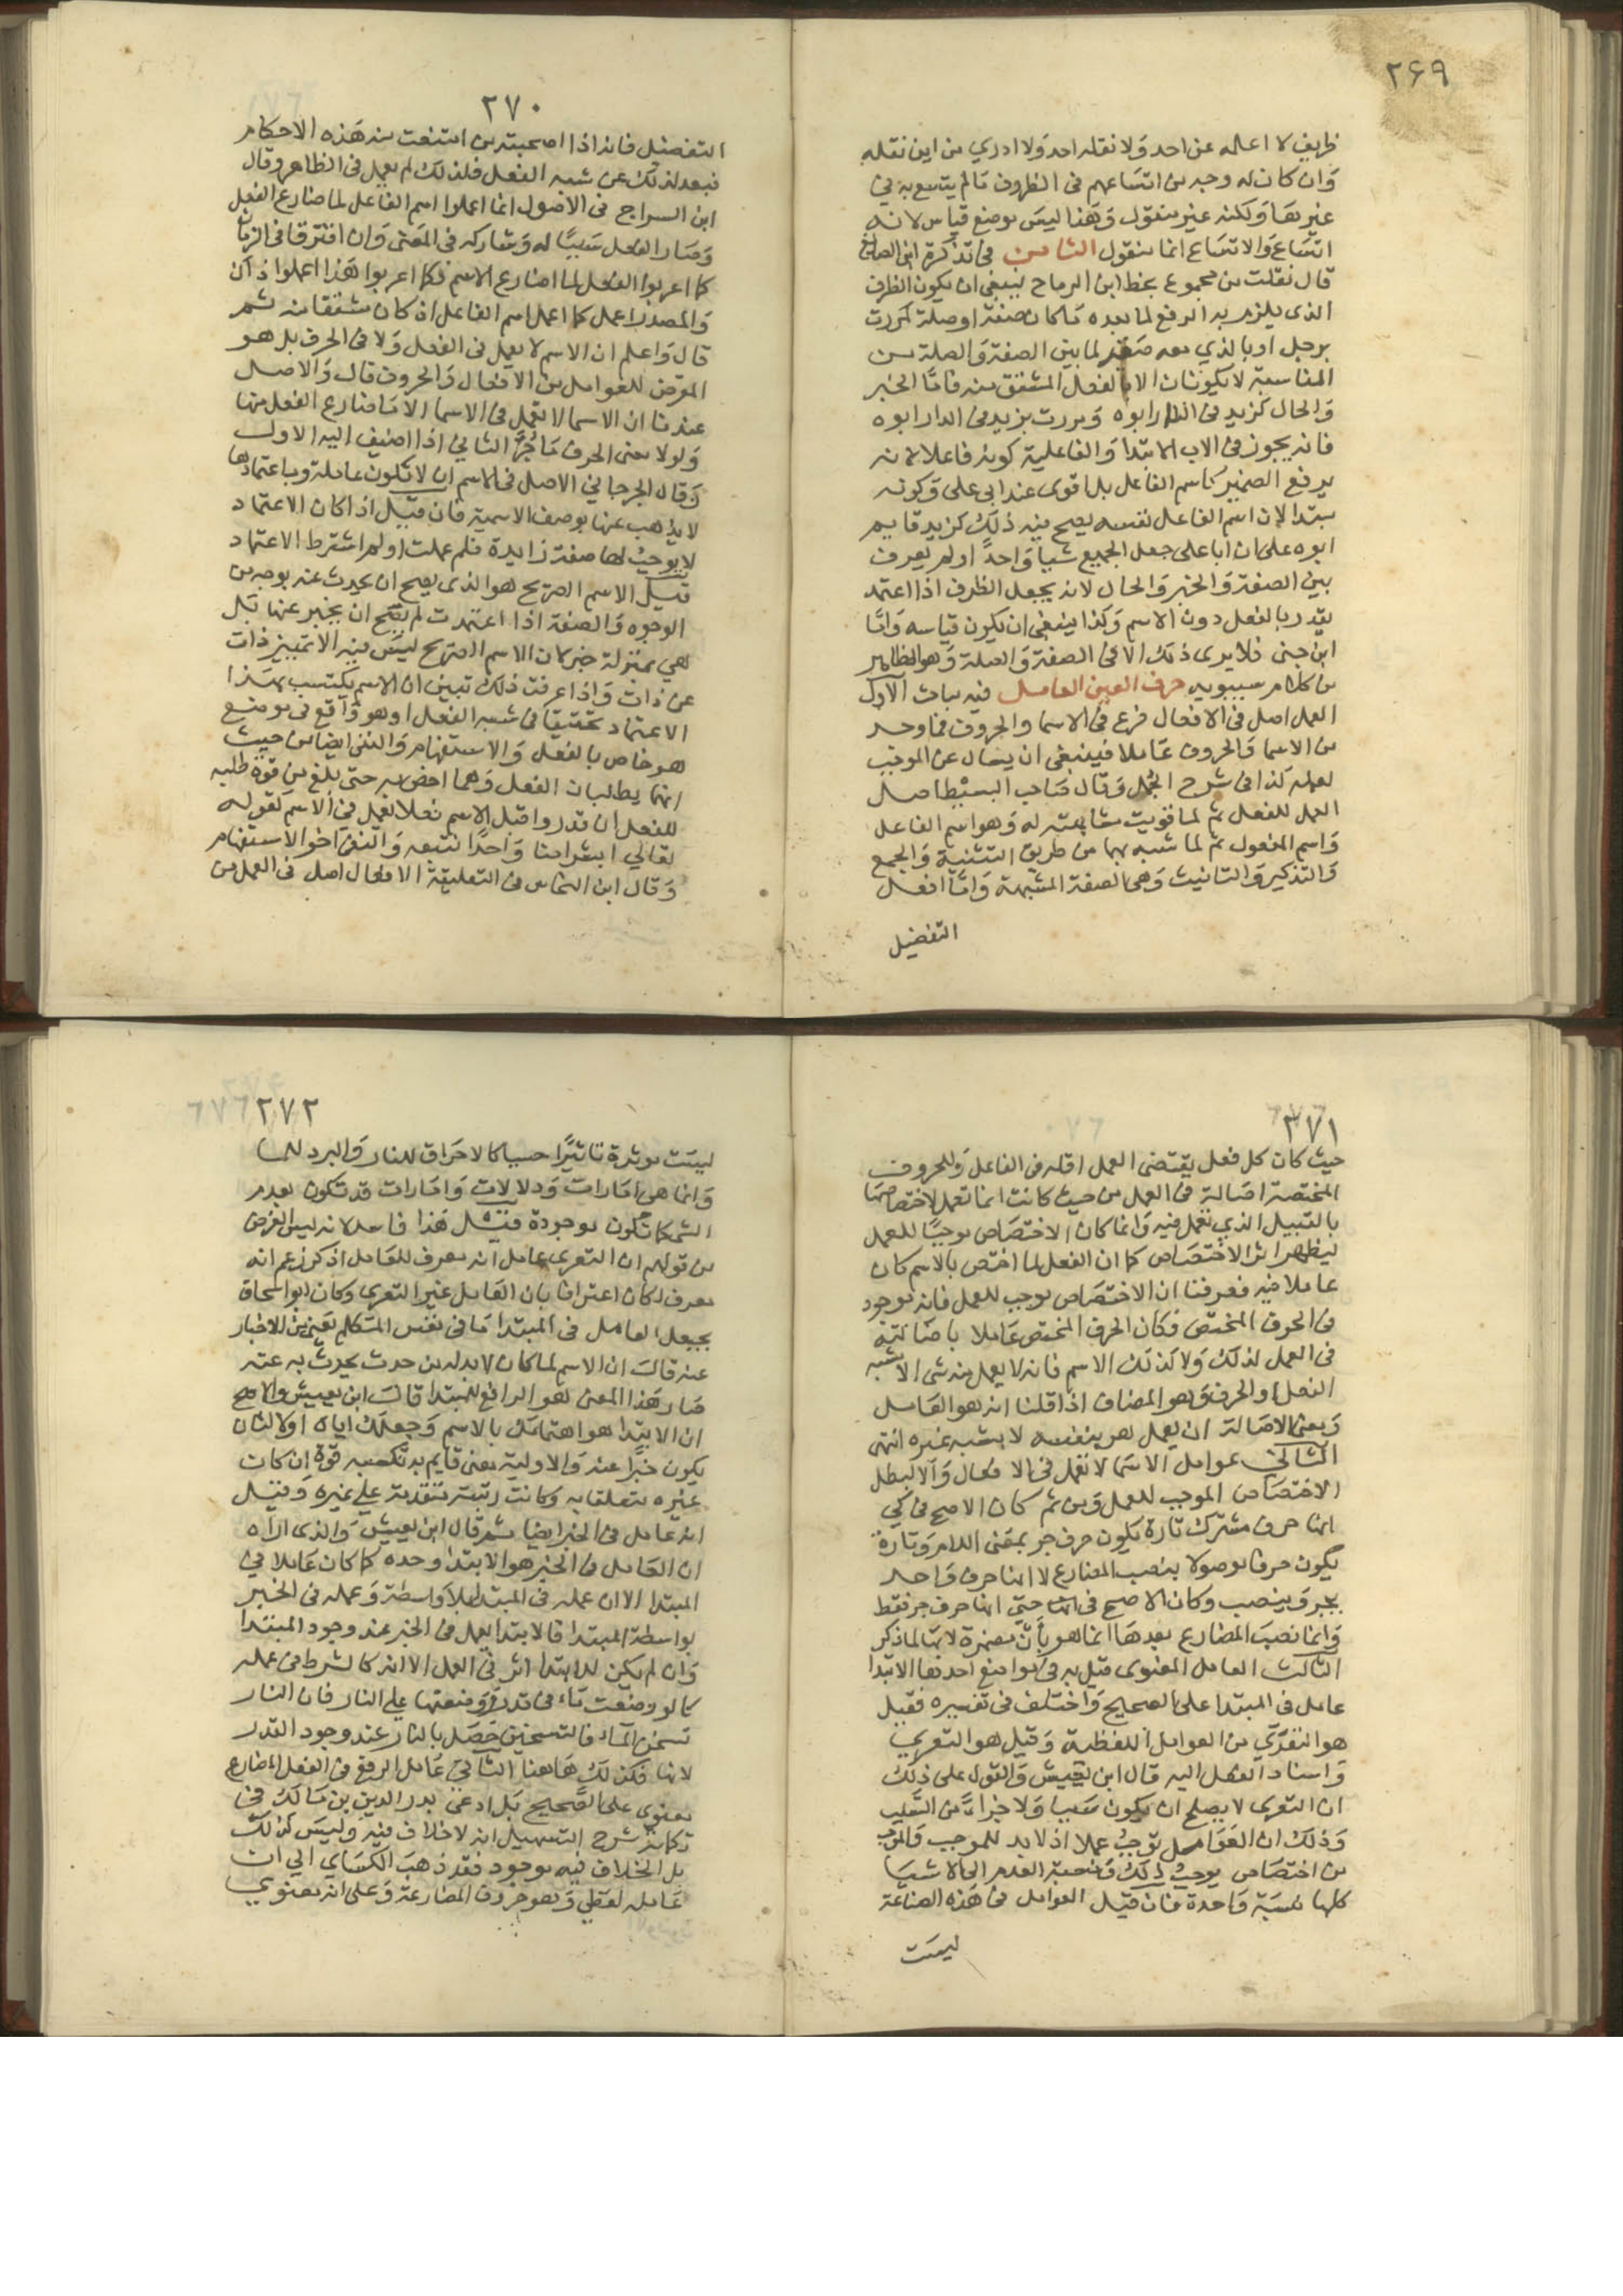 ٢٦٩
ظريف لا اعلمه عن احد وَلا نقله احد وَلا ادري من اين نقله
وَان كان له وجه من اتسَاعهم في الظروف مَا لم يتسع به في
غيرهَا وَلكنه غير منقول وَهَذا ليسَ موضع قياس لانه
اتسَاع وَالاتسَاع انما منقول الثامن في تذكرة ابن الصايغ
قال نقلت من مجموع بخط ابن الرماح ينبغي ان يكون الظرف
الذي يلزم به الرفع لما بعده مَا كان صفة او صلة كمررت
برجل او بالذي معه صقر لما بين الصفة وَالصلة من
المناسبة لا يكونان الا بالفعل المشتق منه فامّا الخبر
وَالحال كزيد في الدار ابوه وَمررت بزيد في الدار ابوه
فانه يجوز في الاب الابتدا وَالفاعلية كونه فاعلا لانه
يرفع الضمير كاسم الفاعل بل اقوى عند ابي علي وَكونه
مبتدا لان اسم الفاعل نفسه يصح فيه ذلك كزيد قايم
ابوه على ان ابا علي جعل الجميع شيا وَاحداً اولم يعرف
بين الصفة وَالخبر وَالحال لانه يجعل الظرف اذا اعتمد
يقدر بالفعل دون الاسم وَكذا ينبغي ان يكون قياسه وَامّا
ابن جني فلا يرى ذلك الا في الصفة وَالصلة وَهو الظاهر
من كلام سيبويه حرف العين العامل فيه مباحث الاول
العمل اصل في الافعال فرع في الاسما والحروف فما وجد
من الاسما وَالحروف عَاملا فينبغي ان يسال عن الموجب
لعمله كذا في شرح الجمل وَقال صَاحب البسيط اصل
العمل للفعل ثم لما قويت مشابهته له وَهو اسم الفاعل
وَاسم المفعول ثم لما شبه بهما من طريق التثنية وَالجمع
وَالتذكير وَالتانيث وَهي الصفة المشبهة وَامّا افعل
التفضيل
٢٧٠
التفضيل فانه اذا اصحبته من امتنعت منه هَذه الاحكام
فبعد لذلك عن شبه الفعل فلذلك لم يعمل في الظاهر وقال
ابن السراج في الاصول انما اعملوا اسم الفاعل لما ضارع الفعل
وَصَار الفعل سَببًا له وَشاركه في المعَنى وَان افترقا في الزمان
كما اعربوا الفعل لما ضارع الاسم فكما اعربوا هَذا اعملوا ذاك
وَالمصدر اعمل كما اعمل اسم الفاعل اذ كان مشتقا منه ثم
قال وَاعلم ان الاسم لا يعمل في الفعل وَلا في الحرف بل هو
المعرض للعوامل من الافعال وَالحروف قال وَالاصل
عندنا ان الاسما لا تعمل في الاسما الا مَا ضارع الفعل منها
وَلولا معنى الحرف مَا جُرَّ الثاني اذا اضيف اليه الاول
وَقال الجرجاني الاصل في الاسم ان لا تكون عاملة وباعتمادها
لا يذهب عنها بوصف الاسمية فان قيل اذا كان الاعتماد
لا يوجبُ لها صفة زايدة فلم عملت او لم اشترط الاعتماد
قيل الاسم الصريح هو الذي يصح ان يحدث عنه بوجه من
الوجوه وَالصفة اذا اعتمدت لم يصح ان يخبر عنها بَل
هي بمنزلة خبر كان الاسم الصريح ليسَ فيه الا تمييز ذات
عن ذات وَاذا عرفت ذلك تبين ان الاسم يكتسب بهَذا
الاعتماد تحقيقا في شبه الفعل او هو وَاقع في موضع
هو خاص بالفعل وَالاستفهام وَالنفي ايضا من حيث
انهما يطلبان الفعل وَهما اخص به حتى بلغ من قوة طلبه
للفعل ان قدروا قبل الاسم فعلا يعمل في الاسم كقوله
تعالي ابشرا منا وَاحدًا نتبعه وَالنفي اخو الاستفهام
وَقال ابن النحاس في التعليقة الافعال اصل في العمل من
٢٧١
حيث كان كل فعل يقتضي العمل اقله في الفاعل وَللحروف
المختصة اصَالة في العمل من حيث كانت انما تعمل لاختصاصهَا
بالقبيل الذي تعمل فيه وَانما كان الاختصَاص موجبًا للعمل
ليظهر اثر الاختصَاص كما ان الفعل لما اختص بالاسم كان
عاملا فيه فعرفنا ان الاختصَاص موجب للعمل فانه موجود
في الحرف المختص فكان الحرف المختص عَاملا باصَالته
في العمل لذلك وَلا كذلك الاسم فانه لا يعمل منه شي الا بشبه
الفعل او الحرف وَهو المضاف اذا قلنا انه هو العَامل
وَيعني الاصَالة ان يعمل هو بنفسه لا بشبه غيره انتهى
الثاني عوامل الاسَما لا تعمل في الافعال وَالا لبطل
الاختصَاص الموجب للعمل وَمن ثم كان الاصح في كي
انها حرف مشترك تارة يكون حرف جر بمعَنى اللام وَتارة
يكون حرفا موصولا ينصب المضارع لا انها حرف وَاحد
يجر وَينصب وكان الاصح في حتى انها حرف جر فقط
وَانما نصبَ المضارع بعدهَا انما هو بأن مضمرة لا بها لما ذكر
الثالث العامل المعنوي قيل به في مواضع احدها الابتدا
عامل في المبتدا على الصحيح وَاختلف في تفسيره فقيل
هو التعَرّي من العوامل اللفظية وَقيل هو التعري
وَاسناد الفعل اليه قال ابن يعيش وَالقول على ذلك
ان التعري لا يصلح ان يكون سَببا وَلا جزاءً من السَّبب
وَذلك ان العَوَامل توجبُ عملا اذ لا بد للموجب وَالموجب
من اختصَاص يوجبُ ذلك وَنسبة العدم الي الاشيَا
كلها نسَبة وَاحدة فان قيل العوامل في هَذه الصناعة
ليست
٢٧٢
ليسَت موثرة تاثيرًا حسيا كالاحَراق للنار وَالبرد للمَا
وَانما هي امَارات وَدلالات وَامَارات قد تكون بعدم
الشي كما تكون بوجوده قيل هَذا فاسد لانه ليس الغرض
من قولهم ان التعري عامل انه معرف للعَامل اذ لو زعم انه
معرف لكان اعترافا بان العَامل غير التعري وكان ابو اسحاق
يجعل العامل في المبتدا مَا في نفس المتكلم يَعني من الاخبار
عنه قالَ ان الاسم لما كان لا بد له من حدث يحدث به عنه
صَار هَذا المعنى هو الرافع للمبتدا قالَ ابن يعيش والاصح
ان الابتدا هو اهتمامَك بالاسم وَجعلك اياه اولا لثان
يكون خبرًا عنه وَالاولية معنى قايم به تكسبه قوة ان كان
غيره متعلقا به وكانت رتبته متقدمة علي غيره وَقيل
انه عامل في الخبر ايضا ثم قال ابن يعيش وَالذي اراه
ان العَامل في الخبر هو الابتدا وحده كما كان عَاملا في
المبتدا الا ان عمله في المبتدا بلا وَاسطة وَعمله في الخبر
بواسطة المبتدا فالابتدا يعمل في الخبر عند وجود المبتدا
وَان لم يكن للابتدا اثر في العمل الا انه كالشرط في عمله
كما لو وضعت مَاء في قدر وَوضعتها علي النار فان النار
تسخن المَاء فالتسخين حَصَل بالنار عند وجود القدر
لا بها فكذلك هَاهنا الثاني عَامل الرفع في الفعل المضارع
معنوي على الصَّحيح بَل ادعى بدر الدين بن مَالك في
تكملة شرح التسهيل انه لا خلاف فيه وليسَ كذلك
بل الخلاف فيه موجود فقد ذهبَ الكسَاي الي ان
عَامله لفظي وَهو حروف المضارعة وَعلى انه معنوي